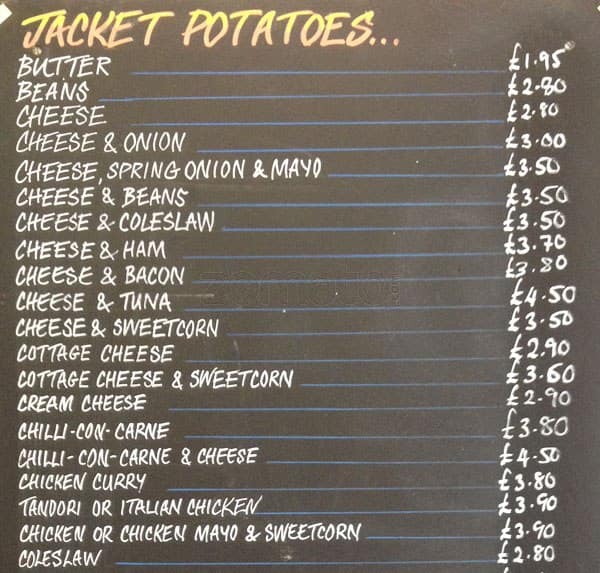 JACKET POTATOES...
BUTTER £1.95
BEANS £2.80
CHEESE £2.80
CHEESE & ONION £3.00
CHEESE, SPRING ONION & MAYO £3.50
CHEESE & BEANS £3.50
CHEESE & COLESLAW £3.50
CHEESE & HAM £3.70
CHEESE & BACON £3.80
CHEESE & TUNA £4.50
CHEESE & SWEETCORN £3.50
COTTAGE CHEESE £2.90
COTTAGE CHEESE & SWEETCORN £3.60
CREAM CHEESE £2.90
CHILLI-CON-CARNE £3.80
CHILLI-CON-CARNE & CHEESE £4.50
CHICKEN CURRY £3.80
TANDORI OR ITALIAN CHICKEN £3.90
CHICKEN OR CHICKEN MAYO & SWEETCORN £3.90
COLESLAW £2.80